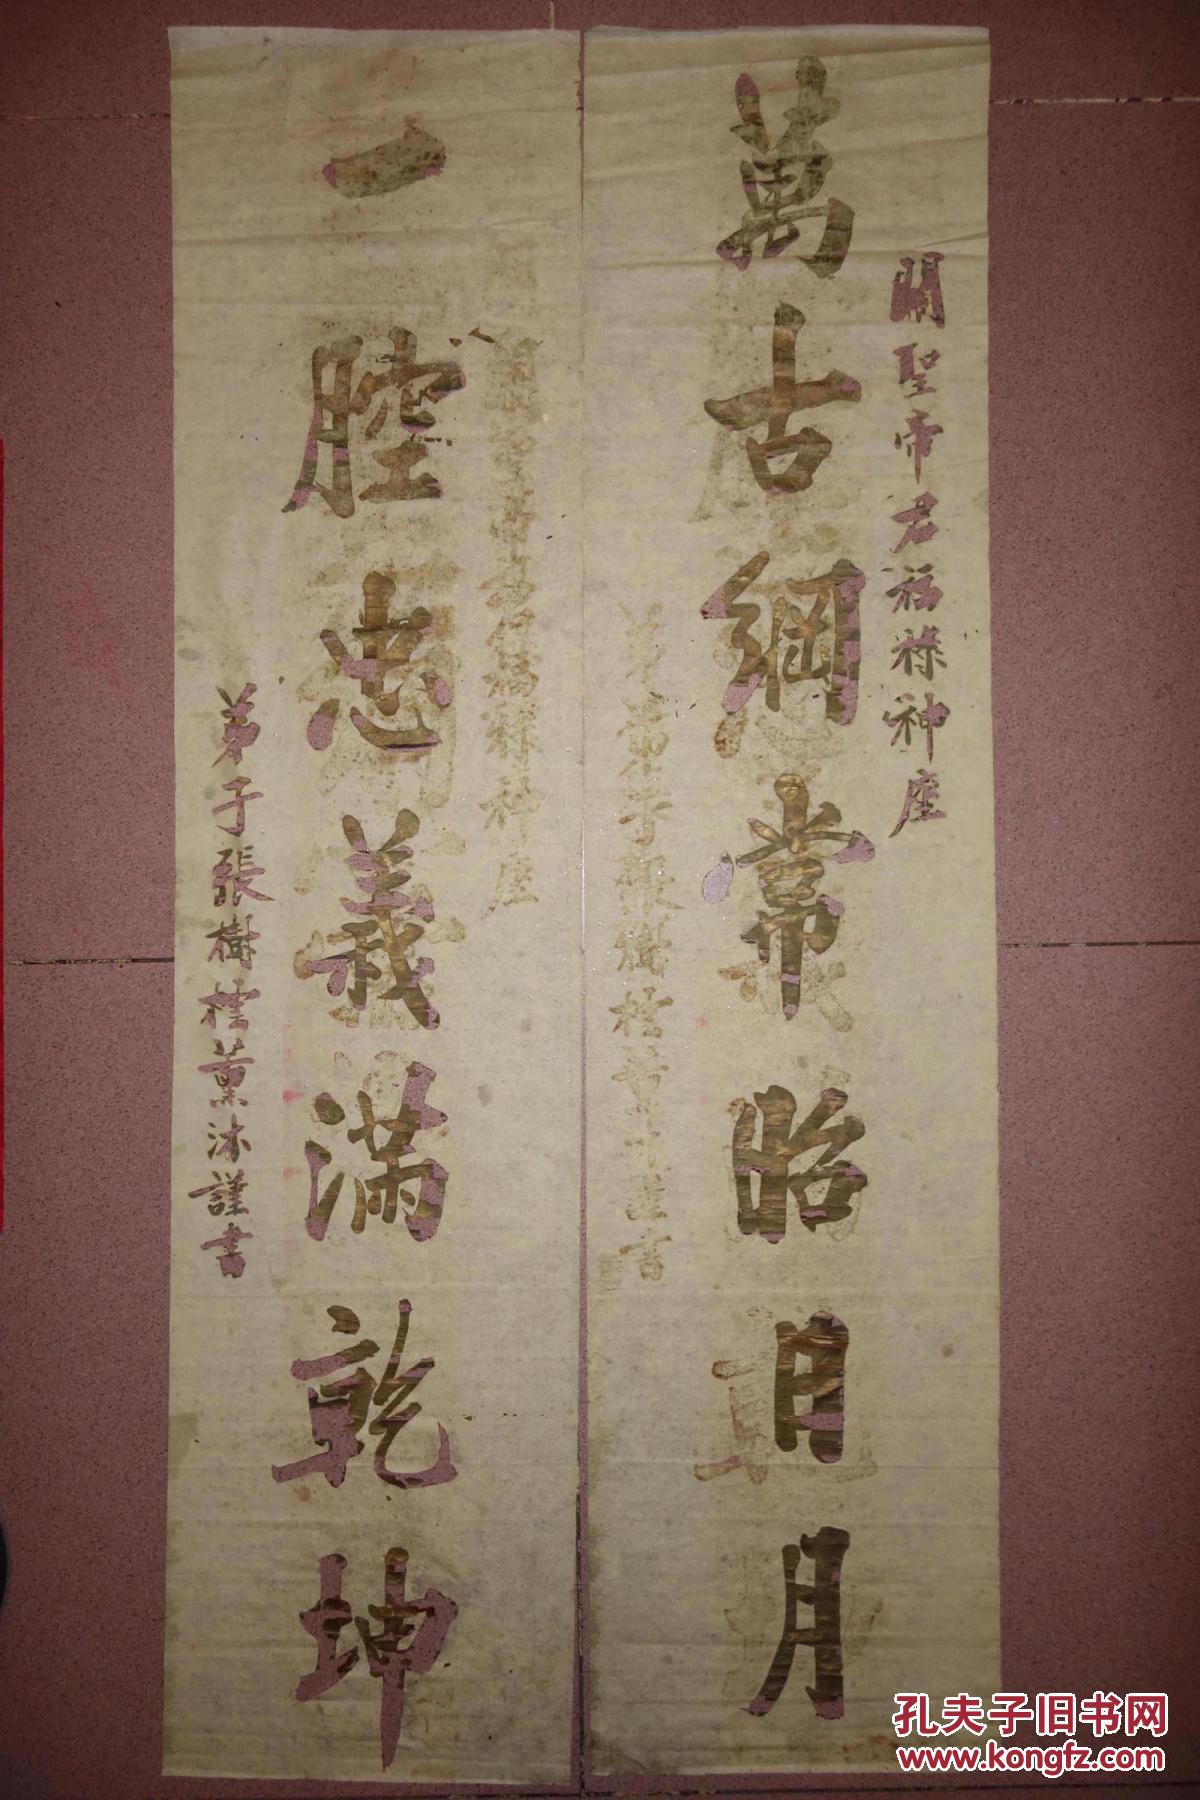 關聖帝君福祿神座
萬古綱常昭日月
一腔忠義滿乾坤
弟子張樹桂薰沐謹書
孔夫子旧书网
www.kongfz.com